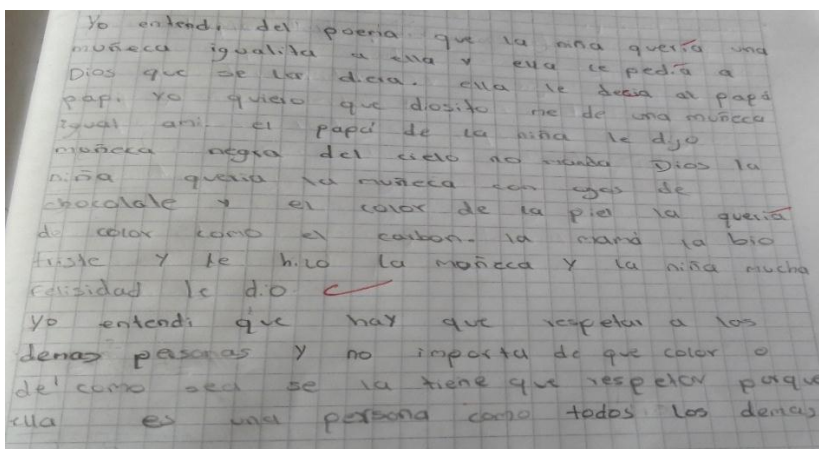 Yo entendi del poema que la niña quería una
muñeca igualita a ella y ella le pedía a
Dios que se la diera. ella le decia al papá
papi yo quiero que diosito me de una muñeca
igual ami el papá de la niña le dijo
muñeca negra del cielo no manda Dios la
niña queria la muñeca con ojos de
chocolate y el color de la piel la quería
de color como el carbon. la mamá la bio
triste y le hizo la moñeca y la niña mucha
felisidad le dio
yo entendi que hay que respetar a los
demas pesonas y no importa de que color o
de como sea se la tiene que respetar porque
ella es una persona como todos los demas